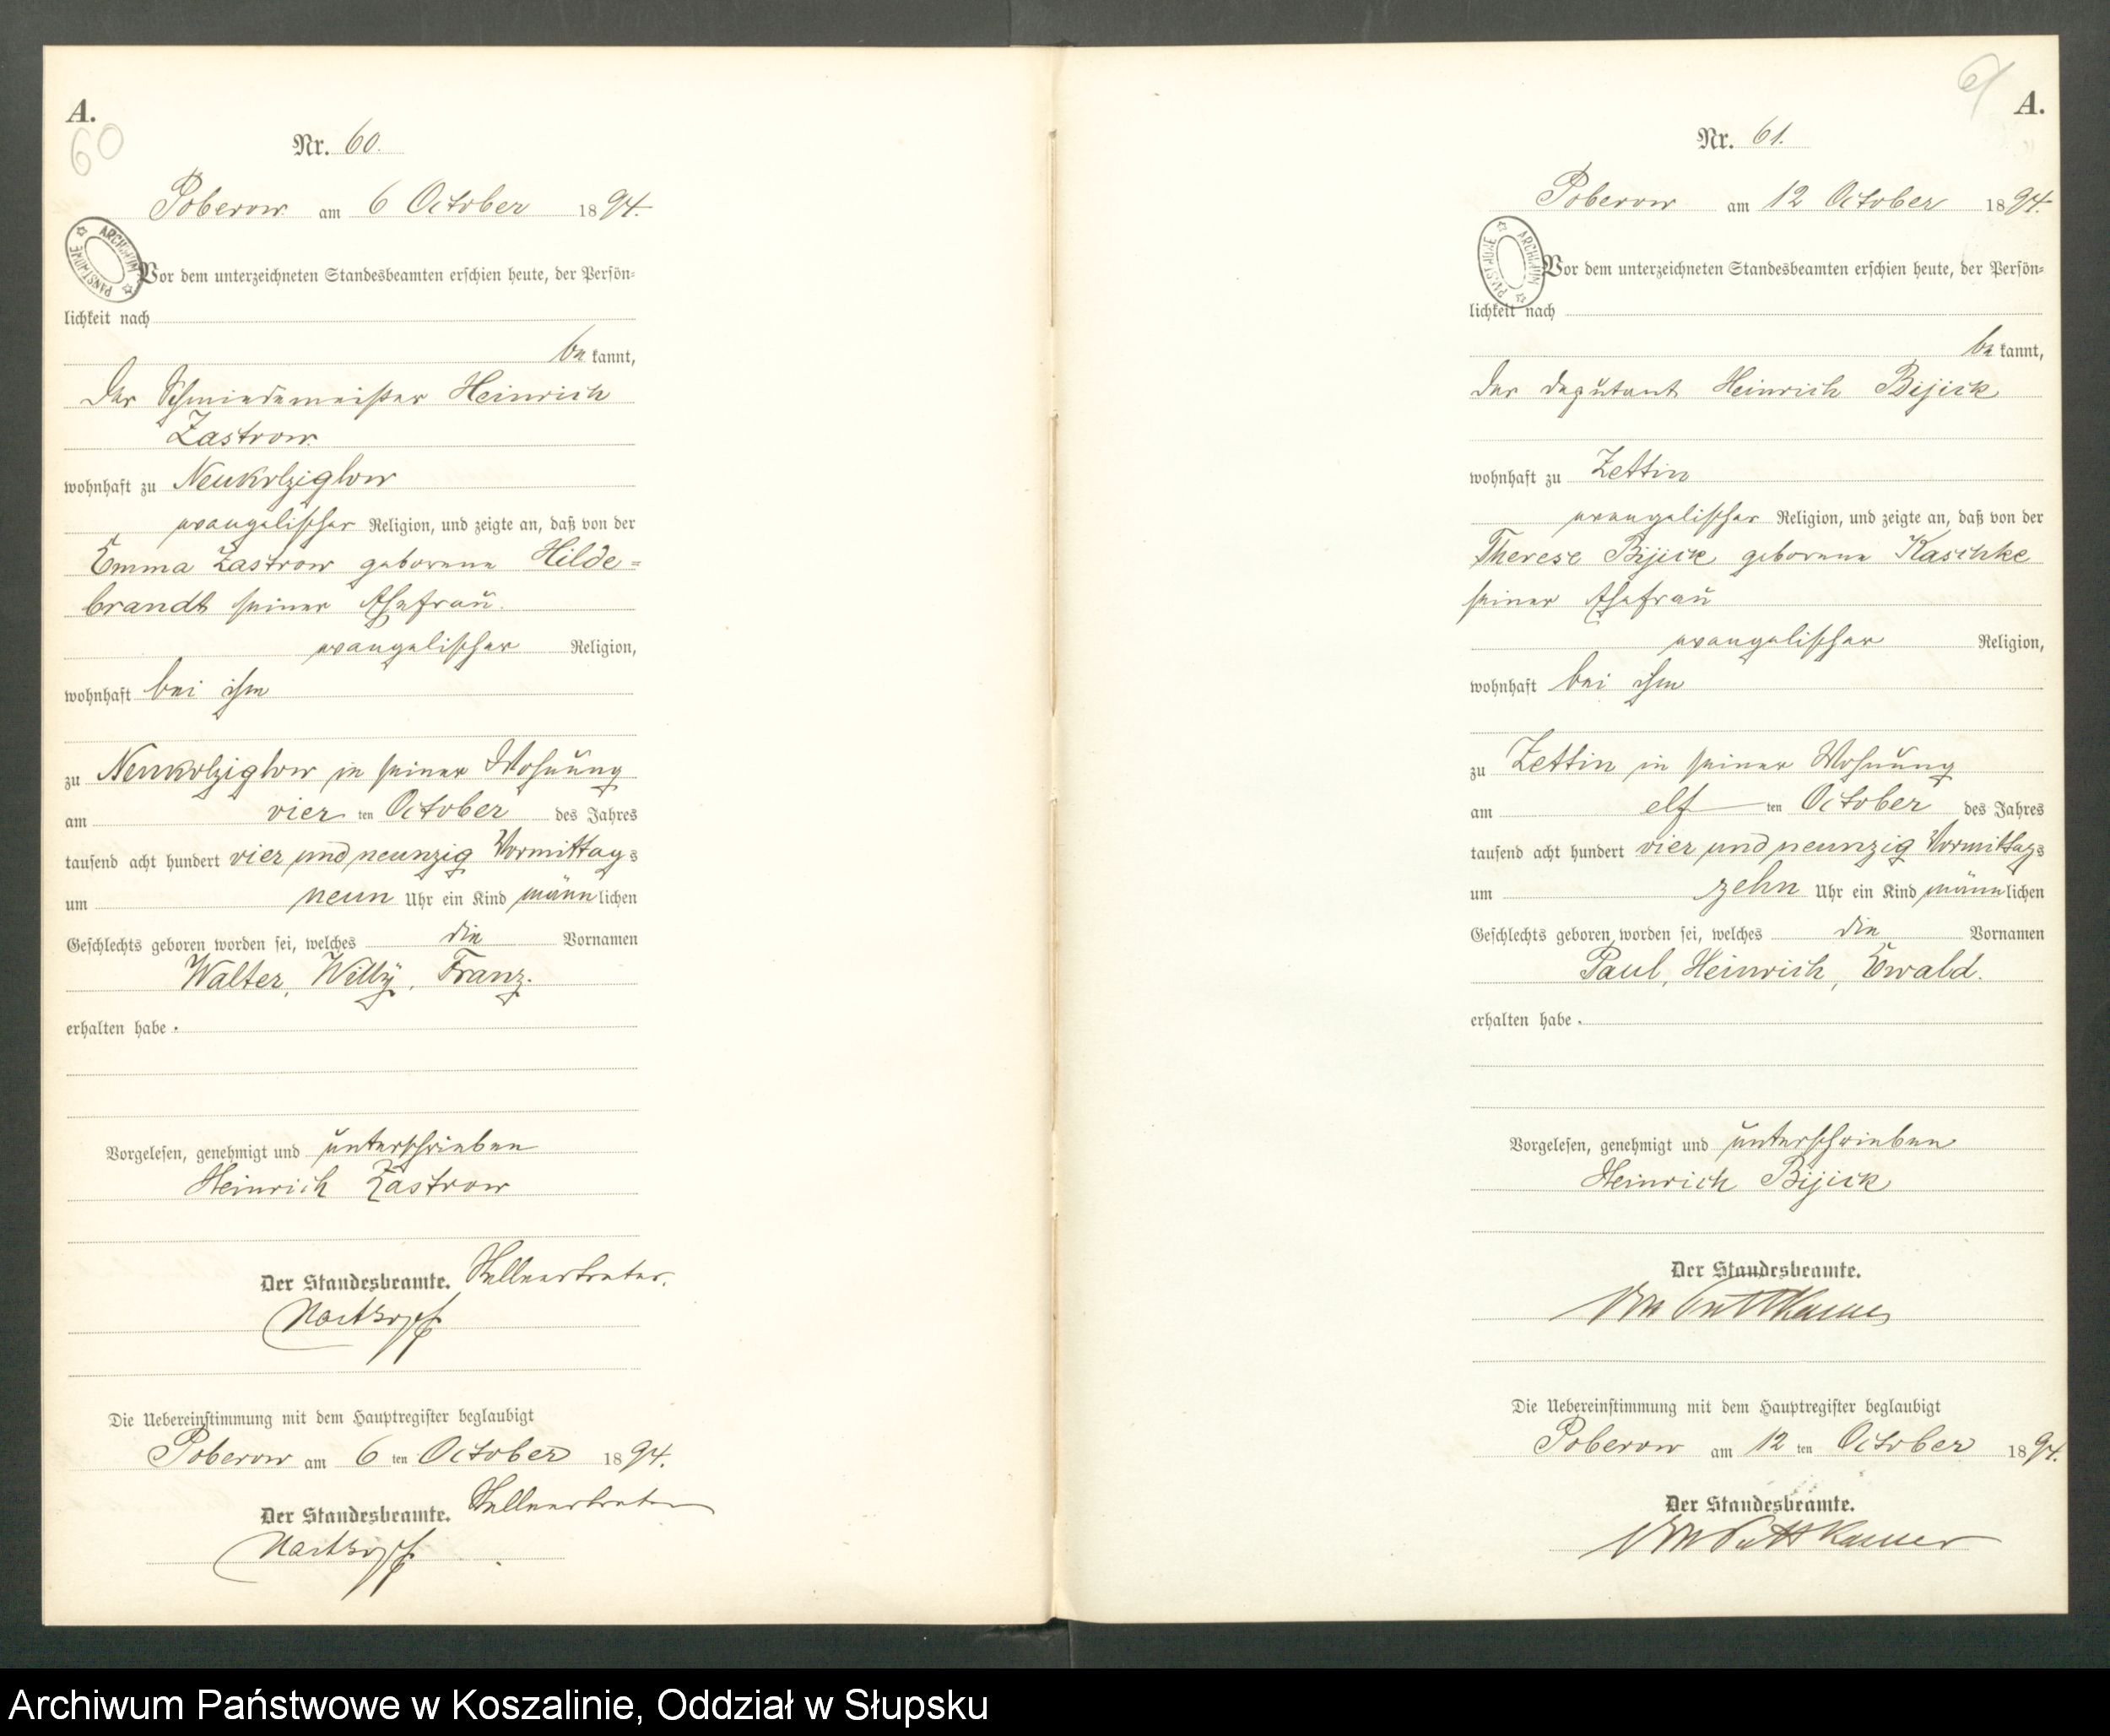 A.
60
Nr. 60.
Poberow am 6 October 1894.
ARCHIWUM PAŃSTWOWE
Vor dem unterzeichneten Standesbeamten erschien heute, der Persön=
lichkeit nach
be kannt,
der Schmiedemeister Heinrich
Zastrow
wohnhaft zu Neukolziglow
evangelischer Religion, und zeigte an, daß von der
Emma Zastrow geborene Hilde=
brandt seiner Ehefrau
evangelischer Religion,
wohnhaft bei ihm
zu Neukolziglow in seiner Wohnung
am vier ten October des Jahres
tausend acht hundert vier und neunzig Vormittags
um neun Uhr ein Kind männlichen
Geschlechts geboren worden sei, welches die Vornamen
Walter, Willy, Franz.
erhalten habe.
Vorgelesen, genehmigt und unterschrieben
Heinrich Zastrow
Der Standesbeamte. Stellvertreter.
Die Uebereinstimmung mit dem Hauptregister beglaubigt
Poberow am 6 ten October 1894.
Der Standesbeamte. Stellvertreter
61
A.
Nr. 61.
Poberow am 12 October 1894.
ARCHIWUM PAŃSTWOWE
Vor dem unterzeichneten Standesbeamten erschien heute, der Persön=
lichkeit nach
be kannt,
der Deputant Heinrich Bijick
wohnhaft zu Zettin
evangelischer Religion, und zeigte an, daß von der
Therese Bijick geborene Kaschke
seiner Ehefrau
evangelischer Religion,
wohnhaft bei ihm
zu Zettin in seiner Wohnung
am elf ten October des Jahres
tausend acht hundert vier und neunzig Vormittags
um zehn Uhr ein Kind männlichen
Geschlechts geboren worden sei, welches die Vornamen
Paul, Heinrich, Ewald.
erhalten habe.
Vorgelesen, genehmigt und unterschrieben
Heinrich Bijick
Der Standesbeamte.
von Puttkamer
Die Uebereinstimmung mit dem Hauptregister beglaubigt
Poberow am 12 ten October 1894.
Der Standesbeamte.
von Puttkamer
Archiwum Państwowe w Koszalinie, Oddział w Słupsku